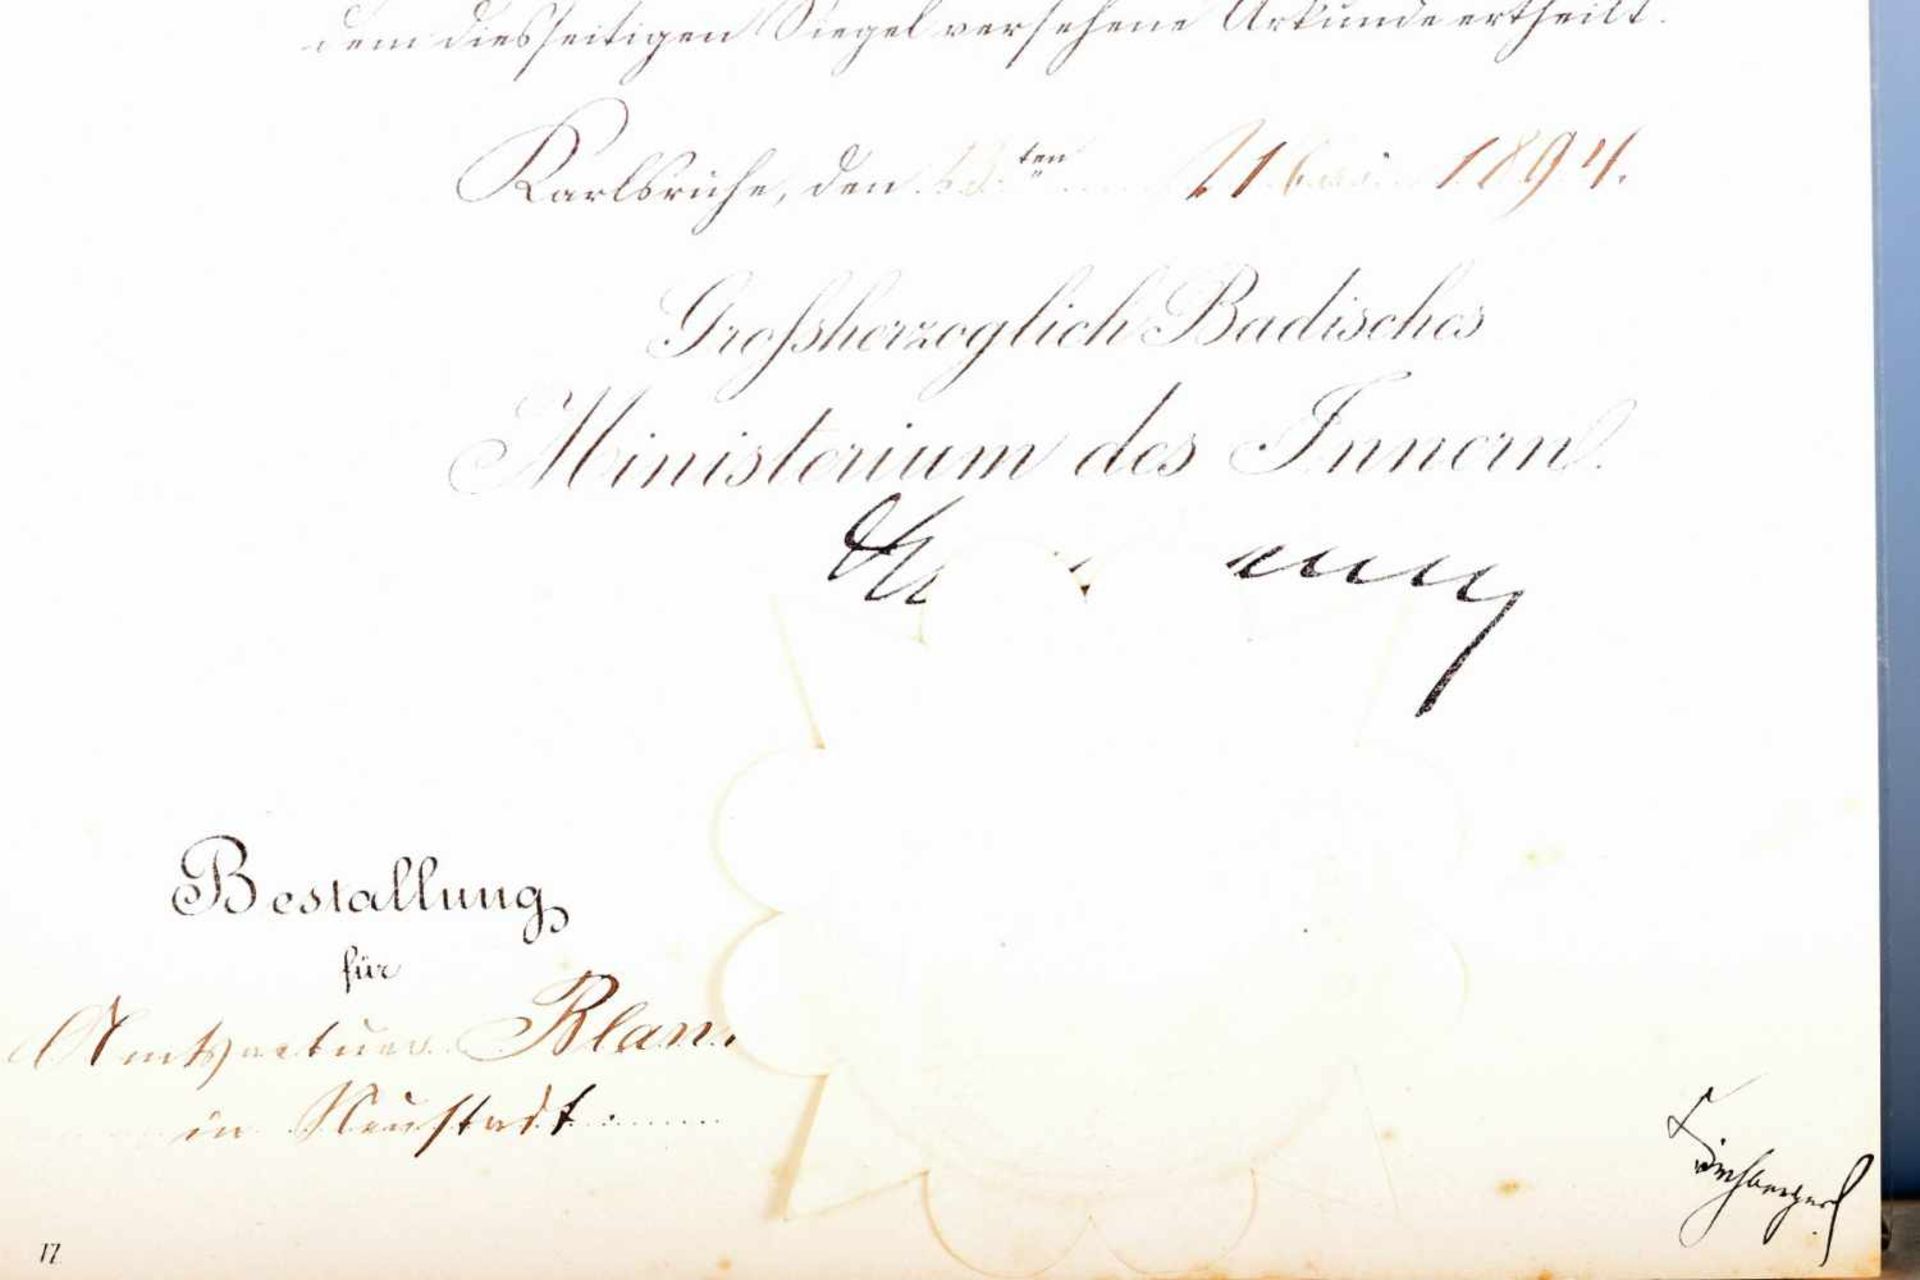 dem diesseitigen Siegel versehene Urkunde ertheilt.
Karlsruhe, den ten 1894.
Großherzoglich Badisches
Ministerium des Innern.
Bestallung
für
Amtsactuar Blan
in Neustadt
17